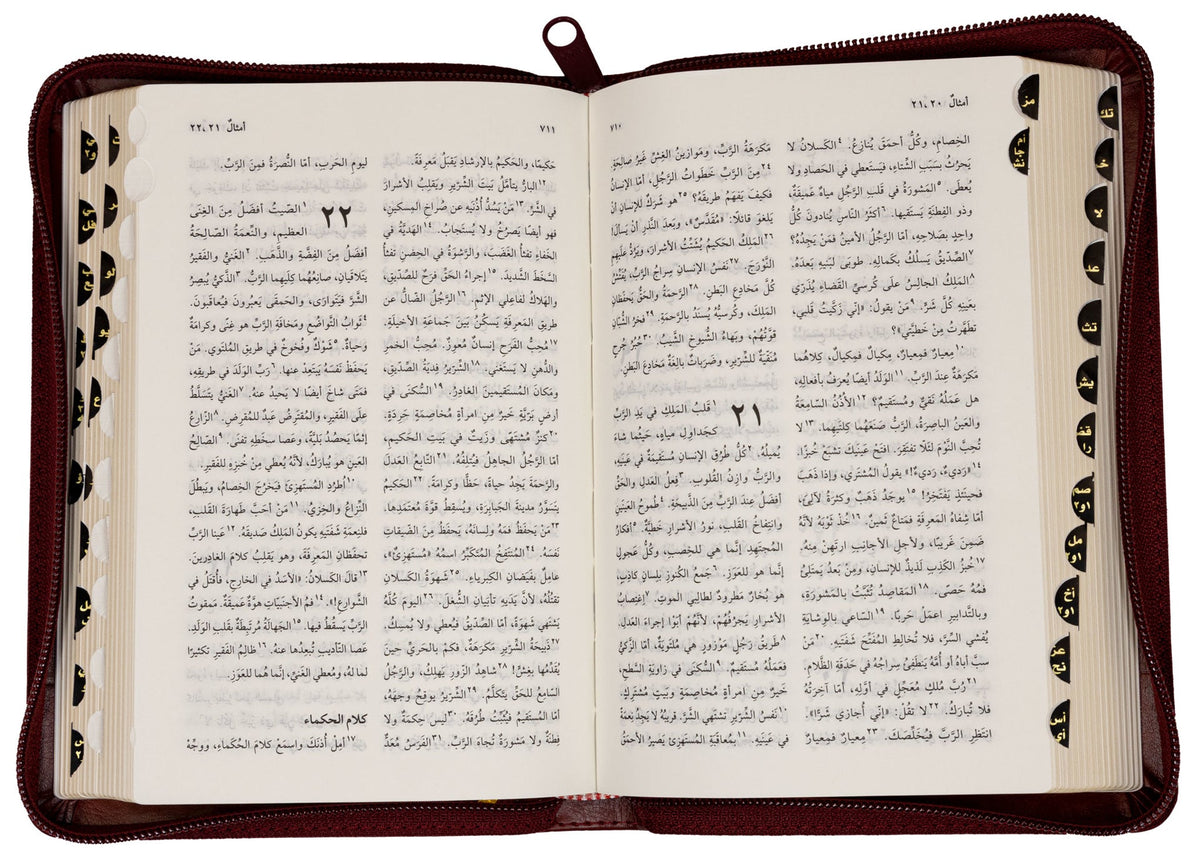 أمثالٌ ٢٠، ٢١
٧١٠
الخِصامِ، وكُلُّ أحمَقَ يُنازِعُ. ٤ الكَسلانُ لا
يَحرُثُ بسَبَبِ الشِّتاءِ، فيَستَعطي في الحَصادِ ولا
يُعطَى. ٥ المَشورَةُ في قَلبِ الرَّجُلِ مياهٌ عَميقَةٌ،
وذو الفِطنَةِ يَستَقيها. ٦ أكثَرُ النّاسِ يُنادونَ كُلُّ
واحِدٍ بصَلاحِهِ، أمّا الرَّجُلُ الأمينُ فمَنْ يَجِدُهُ؟
٧ الصِّدّيقُ يَسلُكُ بكَمالِهِ. طوبَى لبَنيهِ بَعدَهُ.
٨ المَلِكُ الجالِسُ علَى كُرسيِّ القَضاءِ يُذَرّي
بعَينِهِ كُلَّ شَرٍّ. ٩ مَنْ يقولُ: «إنّي زَكَّيتُ قَلبي،
تطَهَّرتُ مِنْ خَطيَّتي»؟
١٠ مِعيارٌ فمِعيارٌ، مِكيالٌ فمِكيالٌ، كِلاهُما
مَكرَهَةٌ عِندَ الرَّبِّ. ١١ الوَلَدُ أيضًا يُعرَفُ بأفعالِهِ،
هل عَمَلُهُ نَقيٌّ ومُستَقيمٌ؟ ١٢ الأُذُنُ السّامِعَةُ
والعَينُ الباصِرَةُ، الرَّبُّ صَنَعَهُما كِلتَيهِما. ١٣ لا
تُحِبَّ النَّوْمَ لئَلّا تفتَقِرَ. افتَحْ عَينَيكَ تشبَعْ خُبزًا.
١٤ «رَديءٌ، رَديءٌ!» يقولُ المُشتَري، وإذا ذَهَبَ
فحينَئذٍ يَفتَخِرُ! ١٥ يوجَدُ ذَهَبٌ وكثرَةُ لآلِئَ،
أمّا شِفاهُ المَعرِفَةِ فمَتاعٌ ثَمينٌ. ١٦ خُذْ ثَوْبَهُ لأنَّهُ
ضَمِنَ غَريبًا، ولأجلِ الأجانِبِ ارتَهِنْ مِنهُ.
١٧ خُبزُ الكَذِبِ لَذيذٌ للإنسانِ، ومِنْ بَعدُ يَمتَلِئُ
فمُهُ حَصًى. ١٨ المَقاصِدُ تُثَبَّتُ بالمَشورَةِ،
وبالتَّدابيرِ اعمَلْ حَربًا. ١٩ السّاعي بالوِشايَةِ
يُفشي السِّرَّ، فلا تُخالِطِ المُفَتِّحَ شَفَتَيهِ. ٢٠ مَنْ
سبَّ أباهُ أو أُمَّهُ يَنطَفِئُ سِراجُهُ في حَدَقَةِ الظَّلامِ.
٢١ رُبَّ مُلكٍ مُعَجِّلٍ في أوَّلِهِ، أمّا آخِرَتُهُ
فلا تُبارَكُ. ٢٢ لا تقُلْ: «إنّي أُجازي شَرًّا».
انتَظِرِ الرَّبَّ فيُخَلِّصَكَ. ٢٣ مِعيارٌ فمِعيارٌ
مَكرَهَةُ الرَّبِّ، ومَوازينُ الغِشِّ غَيرُ صالِحَةٍ.
٢٤ مِنَ الرَّبِّ خَطَواتُ الرَّجُلِ، أمّا الإنسانُ
فكيفَ يَفهَمُ طريقَهُ؟ ٢٥ هو شَرَكٌ للإنسانِ أنْ
يَلغوَ قائلًا: «مُقَدَّسٌ»، وبَعدَ النَّذرِ أنْ يَسألَ!
٢٦ المَلِكُ الحَكيمُ يُشَتِّتُ الأشرارَ، ويَرُدُّ علَيهِمِ
النَّوْرَجَ. ٢٧ نَفسُ الإنسانِ سِراجُ الرَّبِّ، يُفَتِّشُ
كُلَّ مَخادِعِ البَطنِ. ٢٨ الرَّحمَةُ والحَقُّ يَحفَظانِ
المَلِكَ، وكُرسيُّهُ يُسنَدُ بالرَّحمَةِ. ٢٩ فخرُ الشُّبّانِ
قوَّتُهُمْ، وبَهاءُ الشُّيوخِ الشَّيبُ. ٣٠ حُبُرُ جُرحٍ
مُنَقّيَةٌ للشِّرّيرِ، وضَرَباتٌ بالِغَةٌ مَخادِعَ البَطنِ.
٢١
١ قَلبُ المَلِكِ في يَدِ الرَّبِّ
كجَداوِلِ مياهٍ، حَيثُما شاءَ
يُميلُهُ. ٢ كُلُّ طُرُقِ الإنسانِ مُستَقيمَةٌ في عَينَيهِ،
والرَّبُّ وازِنُ القُلوبِ. ٣ فِعلُ العَدلِ والحَقِّ
أفضَلُ عِندَ الرَّبِّ مِنَ الذَّبيحَةِ. ٤ طُموحُ العَينَينِ
وانتِفاخُ القَلبِ، نورُ الأشرارِ خَطيَّةٌ. ٥ أفكارُ
المُجتَهِدِ إنَّما هي للخِصبِ، وكُلُّ عَجولٍ
إنَّما هو للعَوَزِ. ٦ جَمعُ الكُنوزِ بلِسانٍ كاذِبٍ،
هو بُخارٌ مَطرودٌ لطالِبي الموتِ. ٧ اغتِصابُ
الأشرارِ يَجرُفُهُمْ، لأنَّهُمْ أبَوْا إجراءَ العَدلِ.
٨ طريقُ رَجُلٍ مَوْزورٍ هي مُلتَويَةٌ، أمّا الزَّكيُّ
فعَمَلُهُ مُستَقيمٌ. ٩ السُّكنَى في زاويَةِ السَّطحِ،
خَيرٌ مِنِ امرأةٍ مُخاصِمَةٍ وبَيتٍ مُشتَرِكٍ.
١٠ نَفسُ الشِّرّيرِ تشتَهي الشَّرَّ. قريبُهُ لا يَجِدُ نِعمَةً
في عَينَيهِ. ١١ بمُعاقَبَةِ المُستَهزِئِ يَصيرُ الأحمَقُ
٧١١
أمثالٌ ٢١، ٢٢
حَكيمًا، والحَكيمُ بالإرشادِ يَقبَلُ مَعرِفَةً.
١٢ البارُّ يتأمَّلُ بَيتَ الشِّرّيرِ ويَقلِبُ الأشرارَ
في الشَّرِّ. ١٣ مَنْ يَسُدُّ أُذُنَيهِ عن صُراخِ المِسكينِ،
فهو أيضًا يَصرُخُ ولا يُستَجابُ. ١٤ الهَديَّةُ في
الخَفاءِ تفثأُ الغَضَبَ، والرِّشوَةُ في الحِضنِ تفثأُ
السَّخَطَ الشَّديدَ. ١٥ إجراءُ الحَقِّ فرَحٌ للصِّدّيقِ،
والهَلاكُ لفاعِلي الإثمِ. ١٦ الرَّجُلُ الضّالُّ عن
طريقِ المَعرِفَةِ يَسكُنُ بَينَ جَماعَةِ الأخيِلَةِ.
١٧ مُحِبُّ الفَرَحِ إنسانٌ مُعوِزٌ. مُحِبُّ الخمرِ
والدُّهنِ لا يَستَغني. ١٨ الشِّرّيرُ فِديَةُ الصِّدّيقِ،
ومَكانَ المُستَقيمينَ الغادِرُ. ١٩ السُّكنَى في
أرضٍ بَرّيَّةٍ خَيرٌ مِنِ امرأةٍ مُخاصِمَةٍ حَرِدَةٍ.
٢٠ كنزٌ مُشتَهًى وزَيتٌ في بَيتِ الحَكيمِ،
أمّا الرَّجُلُ الجاهِلُ فيُتلِفُهُ. ٢١ التّابِعُ العَدلَ
والرَّحمَةَ يَجِدُ حياةً، حَظًّا وكرامَةً. ٢٢ الحَكيمُ
يتَسَوَّرُ مدينةَ الجَبابِرَةِ، ويُسقِطُ قوَّةَ مُعتَمَدِها.
٢٣ مَنْ يَحفَظُ فمَهُ ولِسانَهُ، يَحفَظُ مِنَ الضّيقاتِ
نَفسَهُ. ٢٤ المُنتَفِخُ المُتَكَبِّرُ اسمُهُ «مُستَهزِئٌ»،
عامِلٌ بفَيَضانِ الكِبرياءِ. ٢٥ شَهوَةُ الكَسلانِ
تقتُلُهُ، لأنَّ يَدَيهِ تأبَيانِ الشُّغلَ. ٢٦ اليومَ كُلَّهُ
يَشتَهي شَهوَةً، أمّا الصِّدّيقُ فيُعطي ولا يُمسِكُ.
٢٧ ذَبيحَةُ الشِّرّيرِ مَكرَهَةٌ، فكمْ بالحَريِّ حينَ
يُقَدِّمُها بغِشٍّ! ٢٨ شاهِدُ الزّورِ يَهلِكُ، والرَّجُلُ
السّامِعُ للحَقِّ يتَكلَّمُ. ٢٩ الشِّرّيرُ يوقِحُ وجهَهُ،
أمّا المُستَقيمُ فيُثَبِّتُ طُرُقَهُ. ٣٠ ليس حِكمَةٌ ولا
فِطنَةٌ ولا مَشورَةٌ تُجاهَ الرَّبِّ. ٣١ الفَرَسُ مُعَدٌّ
ليومِ الحَربِ، أمّا النُّصرَةُ فمِنَ الرَّبِّ.
٢٢
١ الصّيتُ أفضَلُ مِنَ الغِنَى
العظيمِ، والنِّعمَةُ الصّالِحَةُ
أفضَلُ مِنَ الفِضَّةِ والذَّهَبِ. ٢ الغَنيُّ والفَقيرُ
يتَلاقَيانِ، صانِعُهُما كِلَيهِما الرَّبُّ. ٣ الذَّكيُّ يُبصِرُ
الشَّرَّ فيَتَوارَى، والحَمقَى يَعبُرونَ فيُعاقَبونَ.
٤ ثَوابُ التَّواضُعِ ومَخافَةِ الرَّبِّ هو غِنًى وكرامَةٌ
وحياةٌ. ٥ شَوْكٌ وفُخوخٌ في طريقِ المُلتَوي. مَنْ
يَحفَظُ نَفسَهُ يَبتَعِدُ عنها. ٦ رَبِّ الوَلَدَ في طريقِهِ،
فمَتَى شاخَ أيضًا لا يَحيدُ عنهُ. ٧ الغَنيُّ يتَسَلَّطُ
علَى الفَقيرِ، والمُقتَرِضُ عَبدٌ للمُقرِضِ. ٨ الزّارِعُ
إثمًا يَحصُدُ بَليَّةً، وعَصا سخَطِهِ تفنَى. ٩ الصّالِحُ
العَينِ هو يُبارَكُ، لأنَّهُ يُعطي مِنْ خُبزِهِ للفَقيرِ.
١٠ اُطرُدِ المُستَهزِئَ فيَخرُجَ الخِصامُ، ويَبطُلَ
النِّزاعُ والخِزيُ. ١١ مَنْ أحَبَّ طَهارَةَ القَلبِ،
فلنِعمَةِ شَفَتَيهِ يكونُ المَلِكُ صَديقَهُ. ١٢ عَينا الرَّبِّ
تحفَظانِ المَعرِفَةَ، وهو يَقلِبُ كلامَ الغادِرينَ.
١٣ قالَ الكَسلانُ: «الأسَدُ في الخارِجِ، فأُقتَلُ في
الشَّوارِعِ!». ١٤ فمُ الأجنَبيّاتِ هوَّةٌ عَميقَةٌ. مَمقوتُ
الرَّبِّ يَسقُطُ فيها. ١٥ الجَهالَةُ مُرتَبِطَةٌ بقَلبِ الوَلَدِ.
عَصا التّأديبِ تُبعِدُها عنهُ. ١٦ ظالِمُ الفَقيرِ تكثيرًا
لما لهُ، ومُعطي الغَنيِّ، إنَّما هُما للعَوَزِ.
كلام الحكماء
١٧ أمِلْ أُذنَكَ واسمَعْ كلامَ الحُكَماءِ، ووَجِّهْ
مز
أم
جا
نش
تك
خر
لا
عد
تث
يش
قض
را
صم
١و٢
مل
١و٢
أخ
١و٢
عز
نح
أس
أي